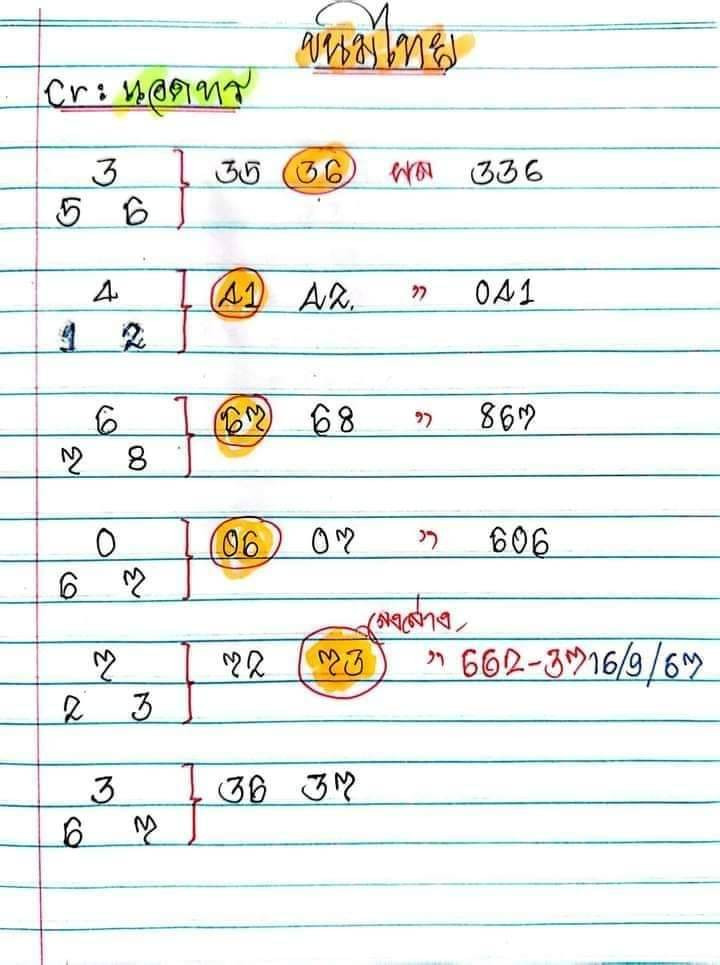 ขนมไทย
Cr: นอดทร
3 } 35 36 ผล 336
5 6
4 } 41 42. " 041
1 2
6 } 67 68 " 867
7 8
0 } 06 07 " 606
6 7
ลงล่าง
7 } 72 73 " 662-37 16/9/67
2 3
3 } 36 37
6 7